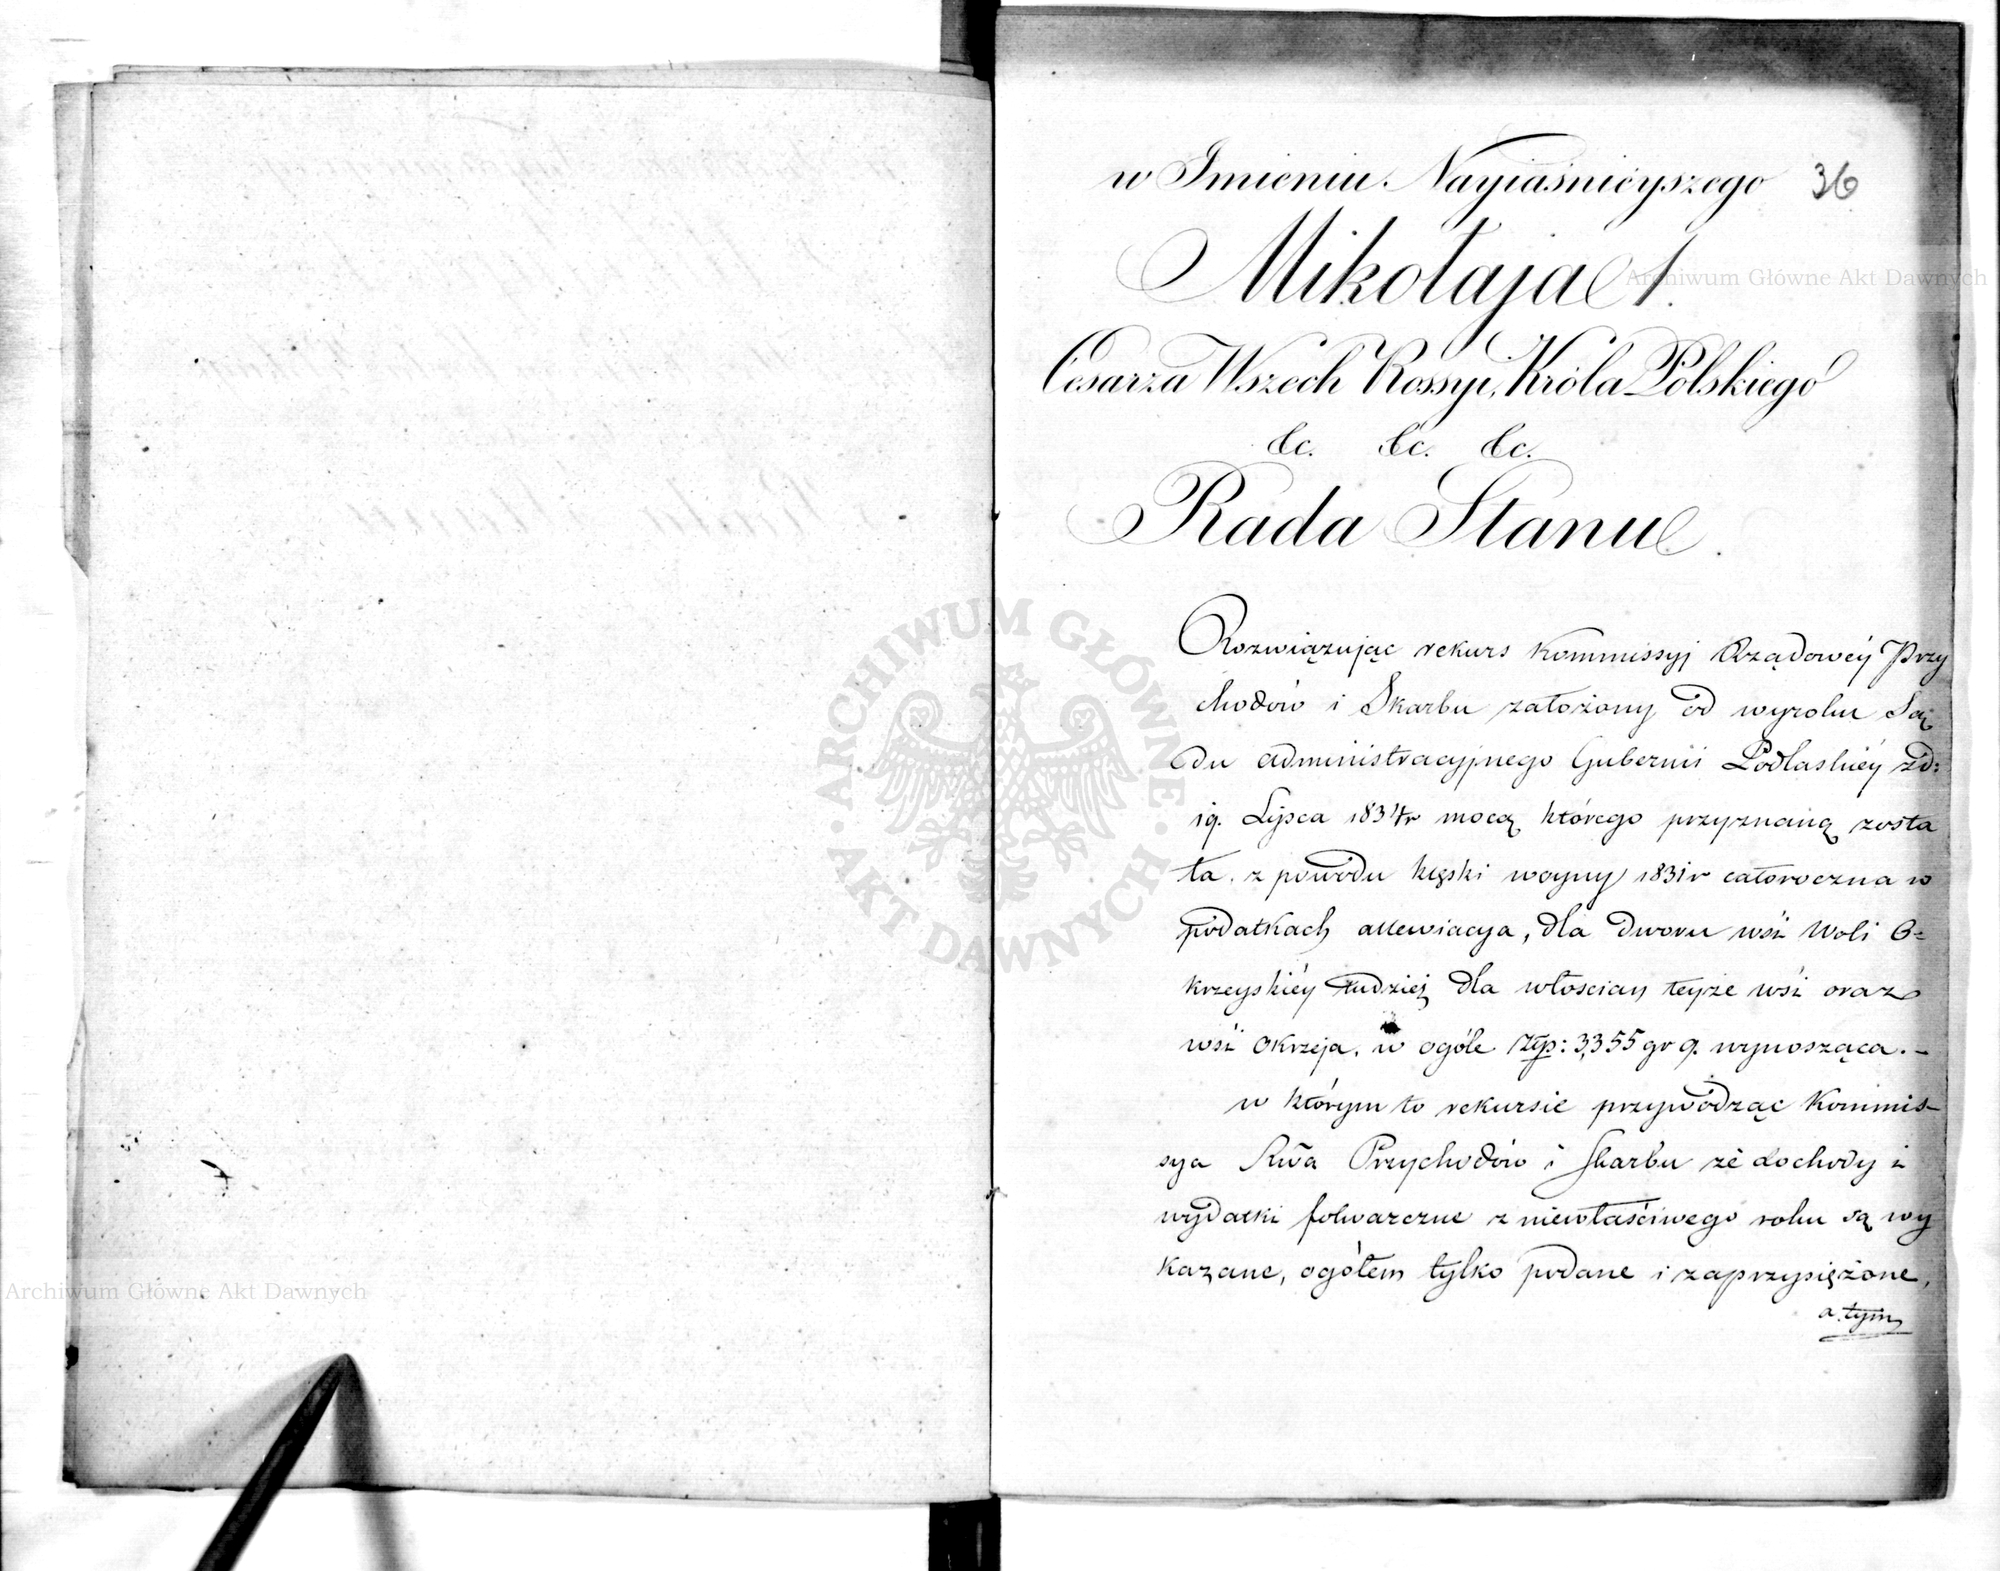 w Imieniu Nayiaśnieyszego
36
Mikołaja I.
Cesarza Wszech Rossyi, Króla Polskiego
&c. &c. &c.
Rada Stanu.
Rozwiązując rekurs Kommissyi Rządowéy Przy
chodów i Skarbu założony od wyroku Są
du administracyjnego Gubernii Podlaskiéy z d:
19. Lipca 1834r mocą którego przyznaną zosta
ła z powodu klęski woyny 1831r całoroczna w
podatkach allewiacya, dla dworu wsi Woli O=
krzeyskiéy tudzież dla włościan teyże wsi oraz
wsi Okrzeja, w ogóle Złp: 3,355 gr 9. wynosząca. –
w którym to rekursie przywodząc Kommis-
sya Rwa Przychodów i Skarbu że dochody i
wydatki folwarczne z niewłaściwego roku są wy
kazane, ogółem tylko podane i zaprzysiężone,
a tym
Archiwum Główne Akt Dawnych
Archiwum Główne Akt Dawnych
ARCHIWUM GŁÓWNE · AKT DAWNYCH ·